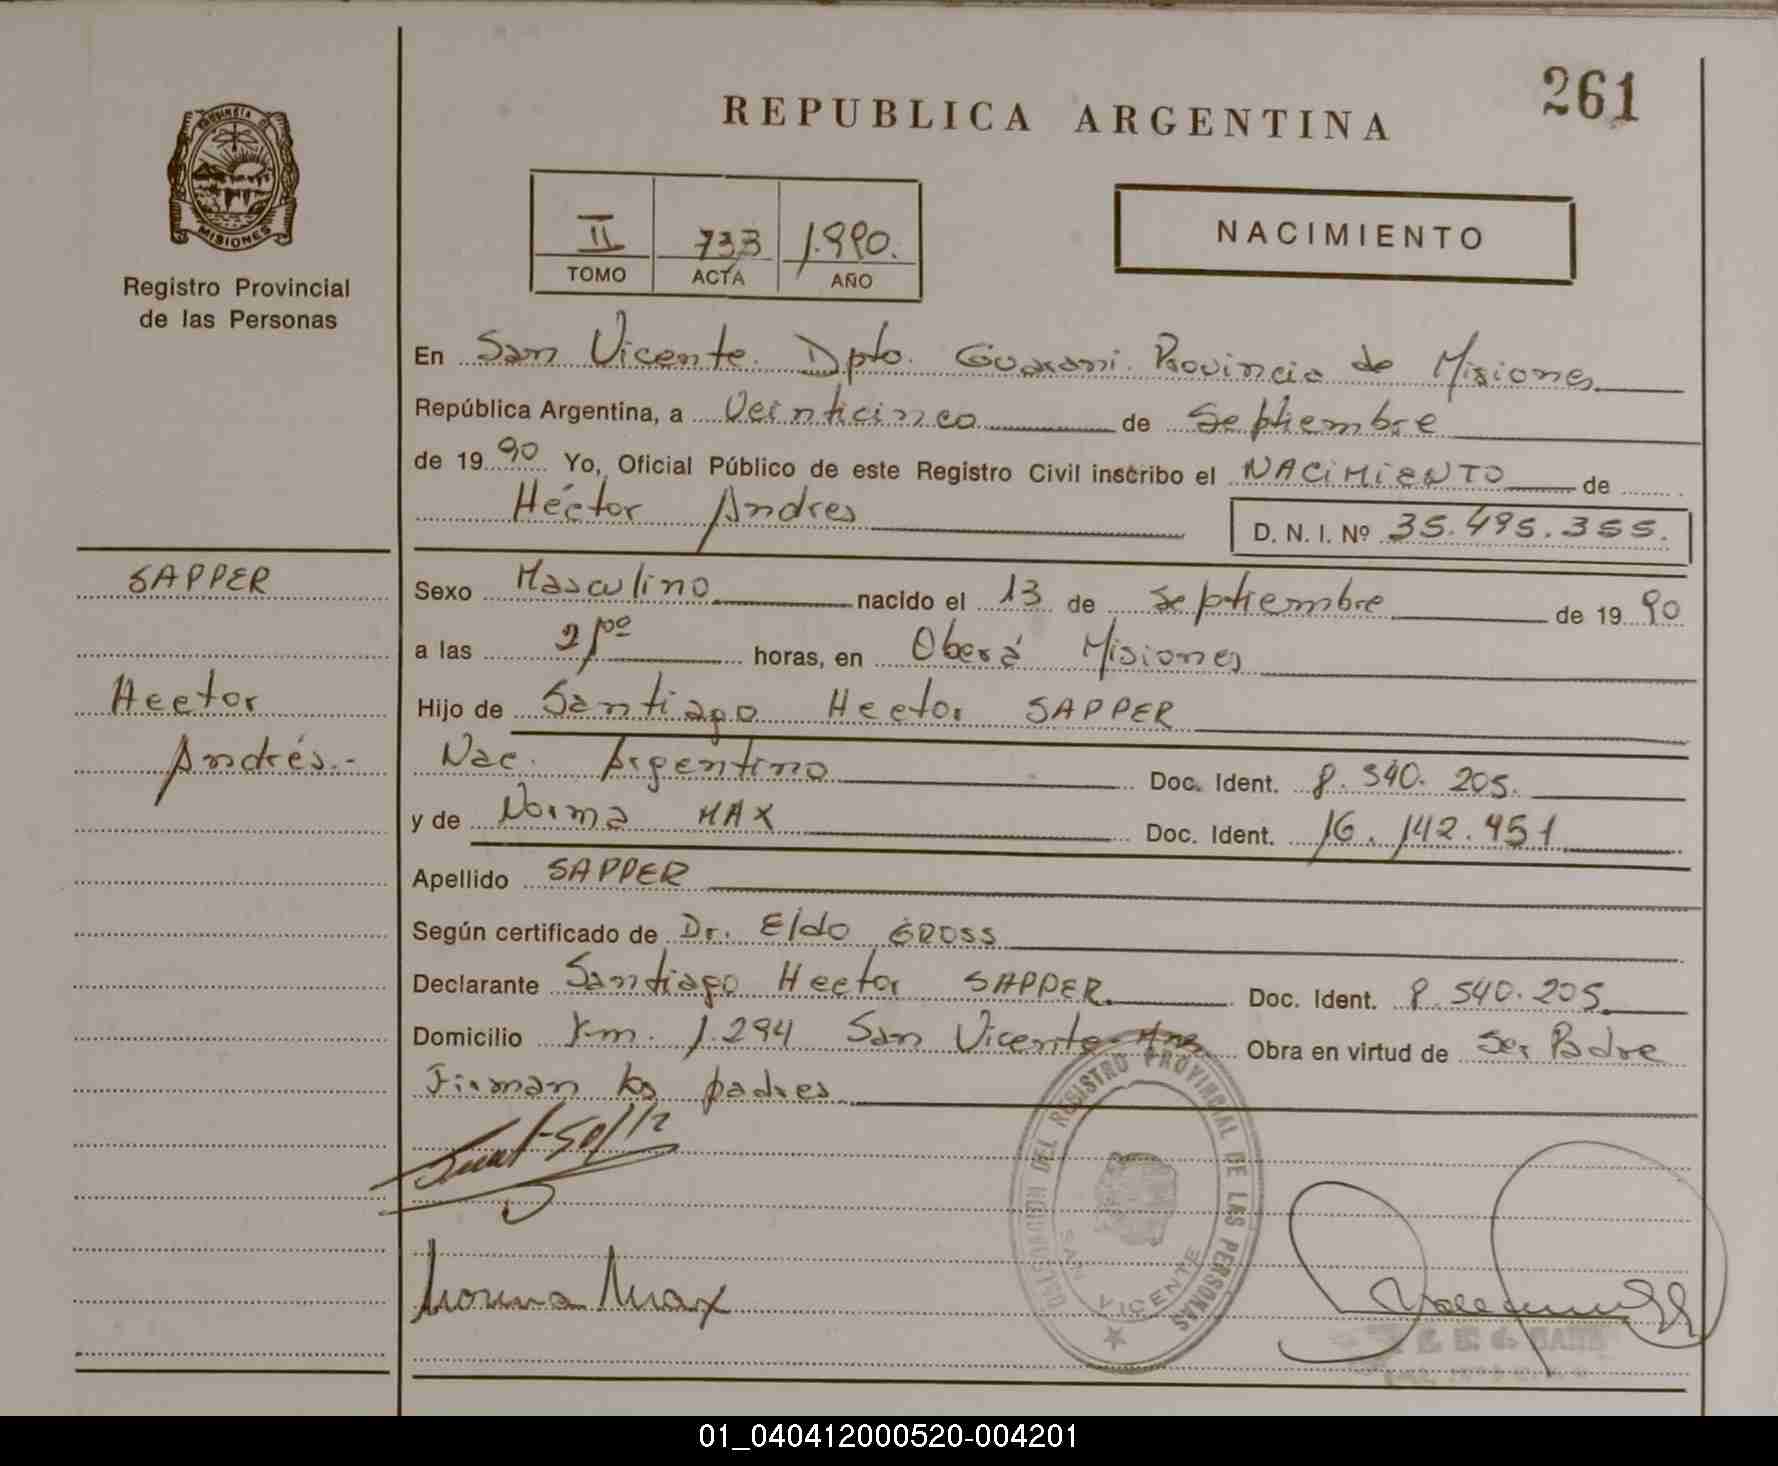 261
REPUBLICA ARGENTINA
PROVINCIA DE
MISIONES
Registro Provincial
de las Personas
II 733 1.990.
TOMO ACTA AÑO
NACIMIENTO
En San Vicente. Dpto. Guarani. Provincia de Misiones
República Argentina, a Veinticinco de Septiembre
de 1990 Yo, Oficial Público de este Registro Civil inscribo el NACIMIENTO de
Héctor Andres
D. N. I. Nº 35.495.355.
SAPPER
Hector
Andrés.-
Sexo Masculino nacido el 13 de Septiembre de 1990
a las horas, en Oberá Misiones
Hijo de Santiago Hector SAPPER
Nac. Argentino Doc. Ident. 8.540.205.
y de Norma MAX Doc. Ident. 16.142.451
Apellido SAPPER
Según certificado de Dr. Eldo GROSS
Declarante Santiago Hector SAPPER. Doc. Ident. 8.540.205.
Domicilio Km. 1.294 San Vicente Mnes Obra en virtud de Ser Padre
Firman los padres
DELEGACION DEL REGISTRO PROVINCIAL DE LAS PERSONAS
SAN VICENTE
Norma Max
01_040412000520-004201